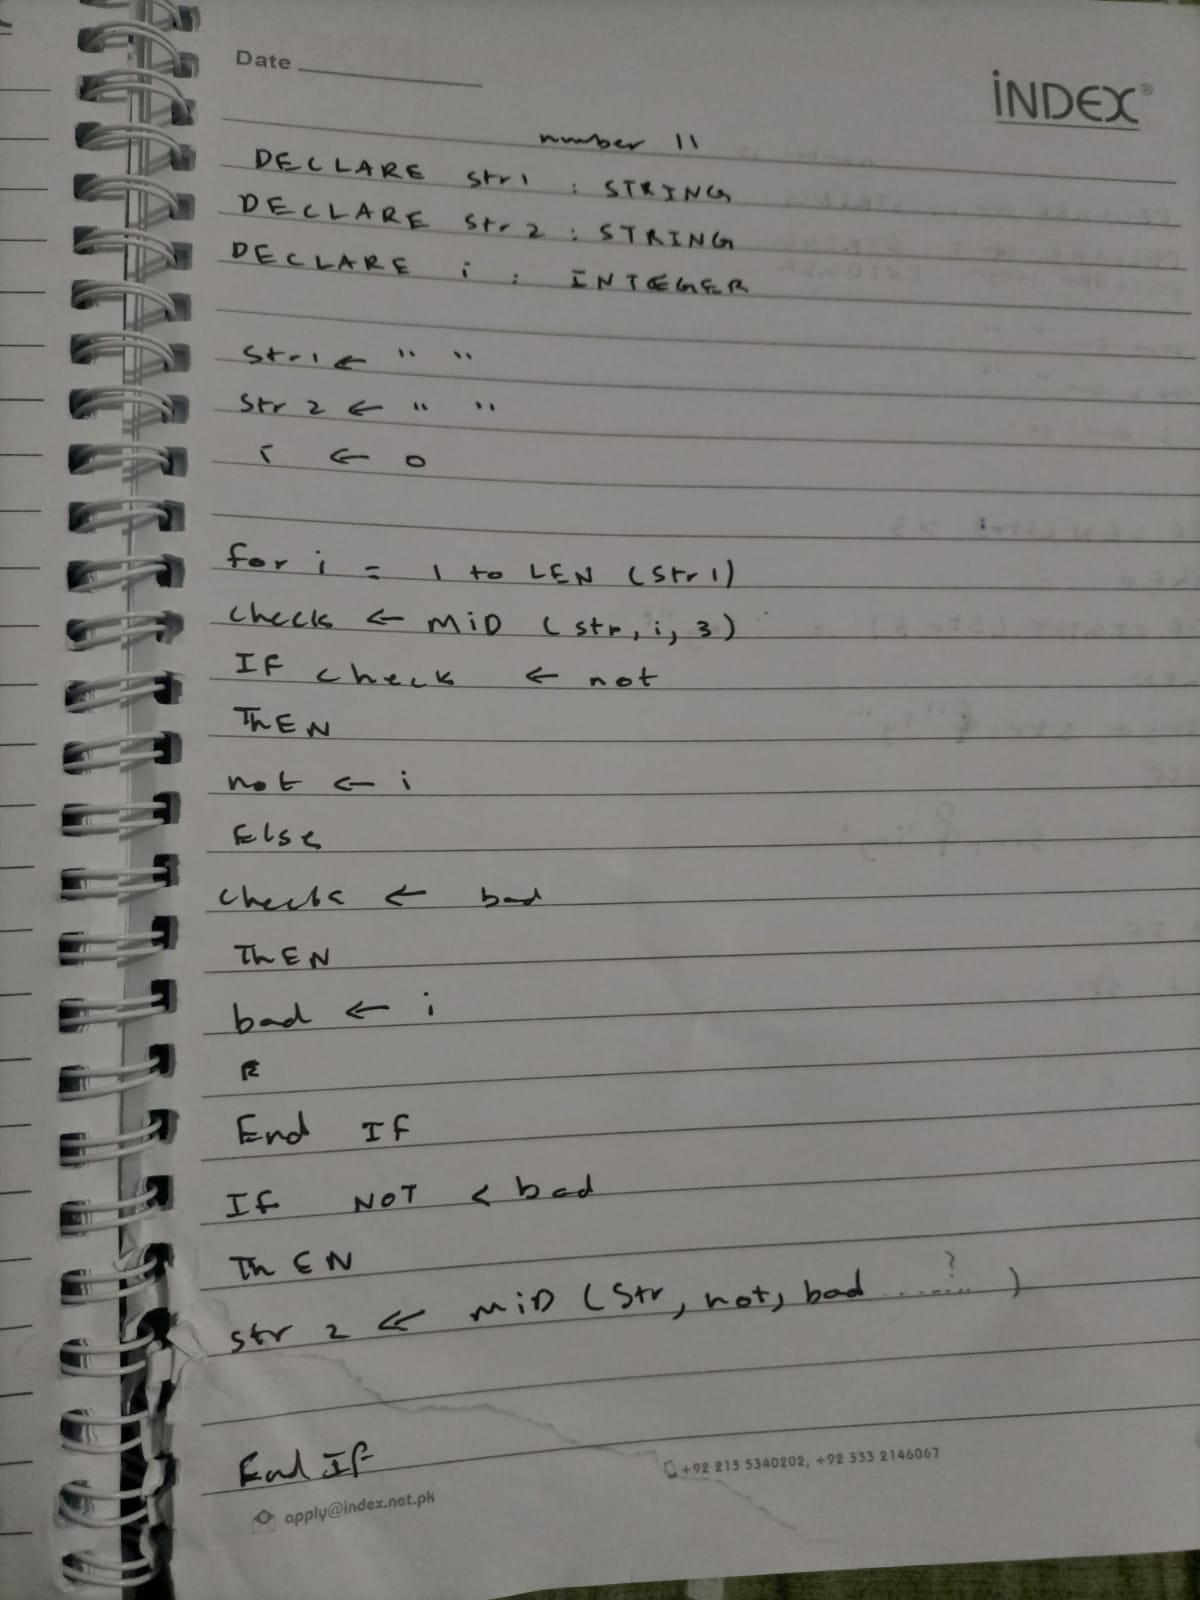 Date
INDEX®
number 11
DECLARE str1 : STRING
DECLARE str2 : STRING
DECLARE i : INTEGER
str1 ← " "
str 2 ← " "
i ← 0
for i = 1 to LEN (str1)
check ← MiD (str, i, 3)
IF check ← not
ThEN
not ← i
Else
check ← bad
ThEN
bad ← i
End IF
If NOT < bad
ThEN
str 2 ← MiD (Str, not, bad ........ ? )
End If
+92 213 5340202, +92 333 2146067
apply@index.net.pk